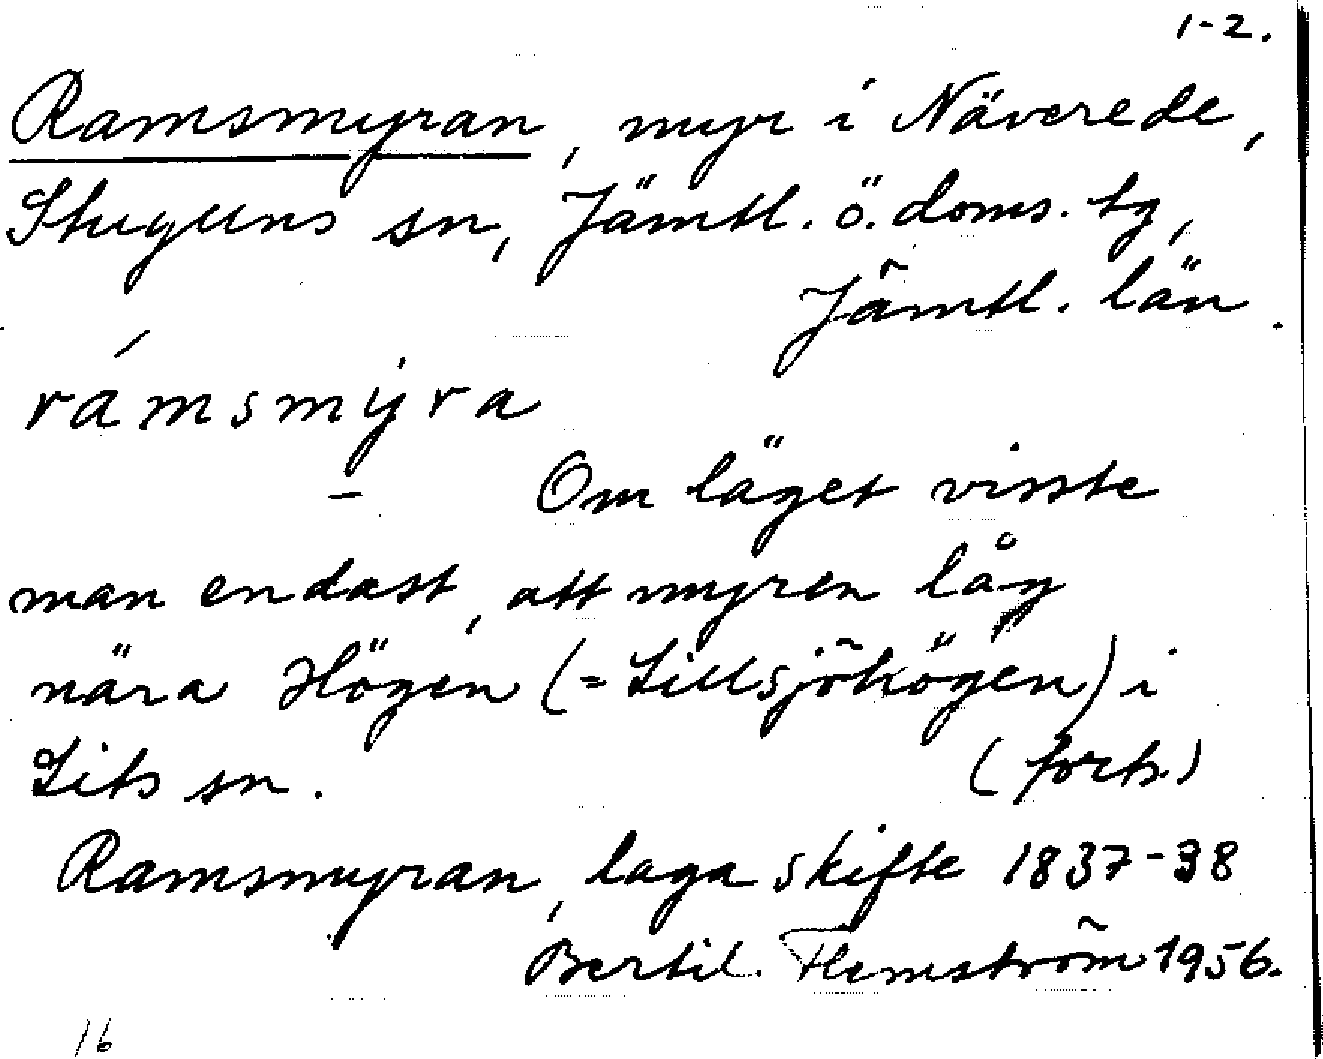 1-2.
Ramsmyran, myr i Näverede,
Stuguns sn, Jämtl. ö. doms. tg,
Jämtl. län.
rámsmyra
- Om läget visste
man endast, att myren låg
nära Högen (= Lillsjöhögen) i
Lits sn. (forts.)
Ramsmyran, laga skifte 1837-38
Bertil Flemström 1956.
16